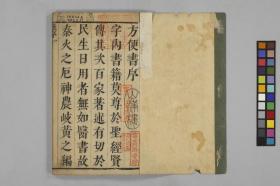 方便書序
宇內書籍莫尊於聖經賢
傳其次百家著述有切於
民生日用者無如醫書故
秦火之厄神農岐黃之編